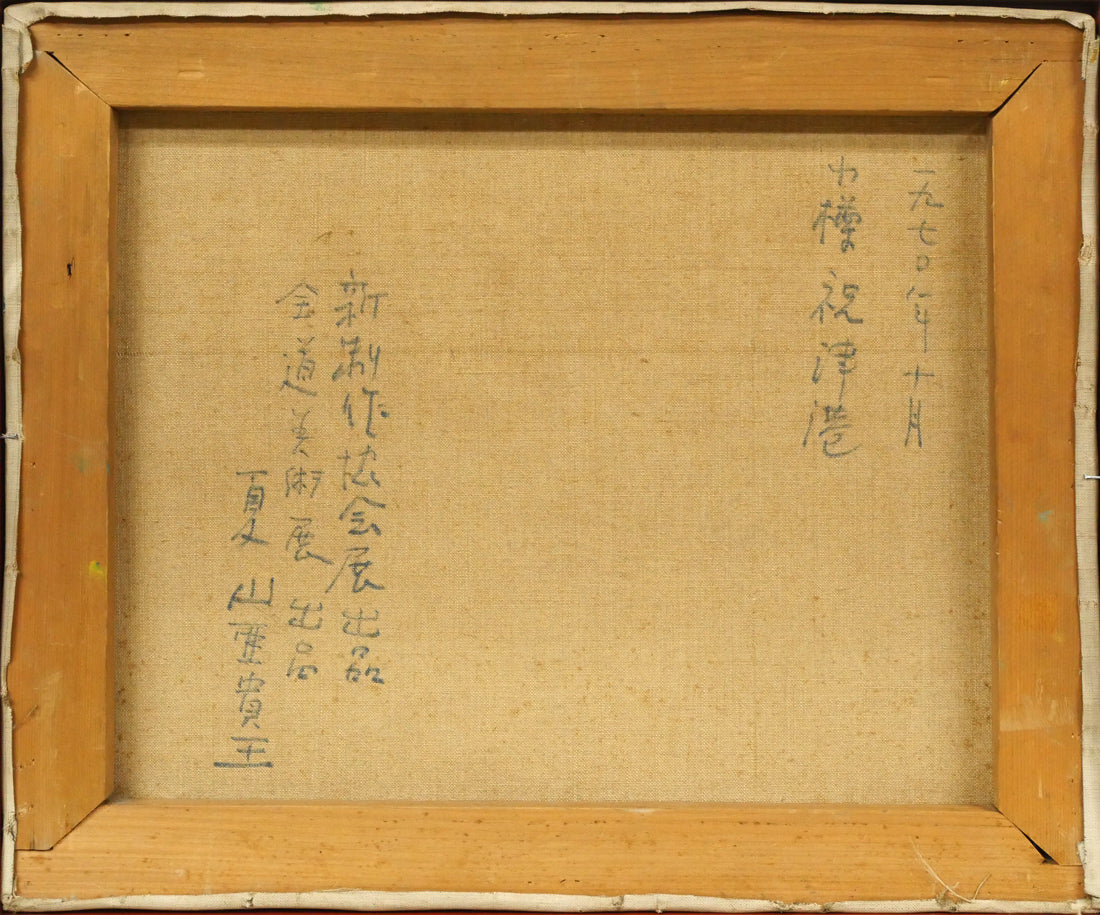 一九七〇年十月
小樽祝津港
新制作協会展出品
全道美術展出品
夏山亜貴王